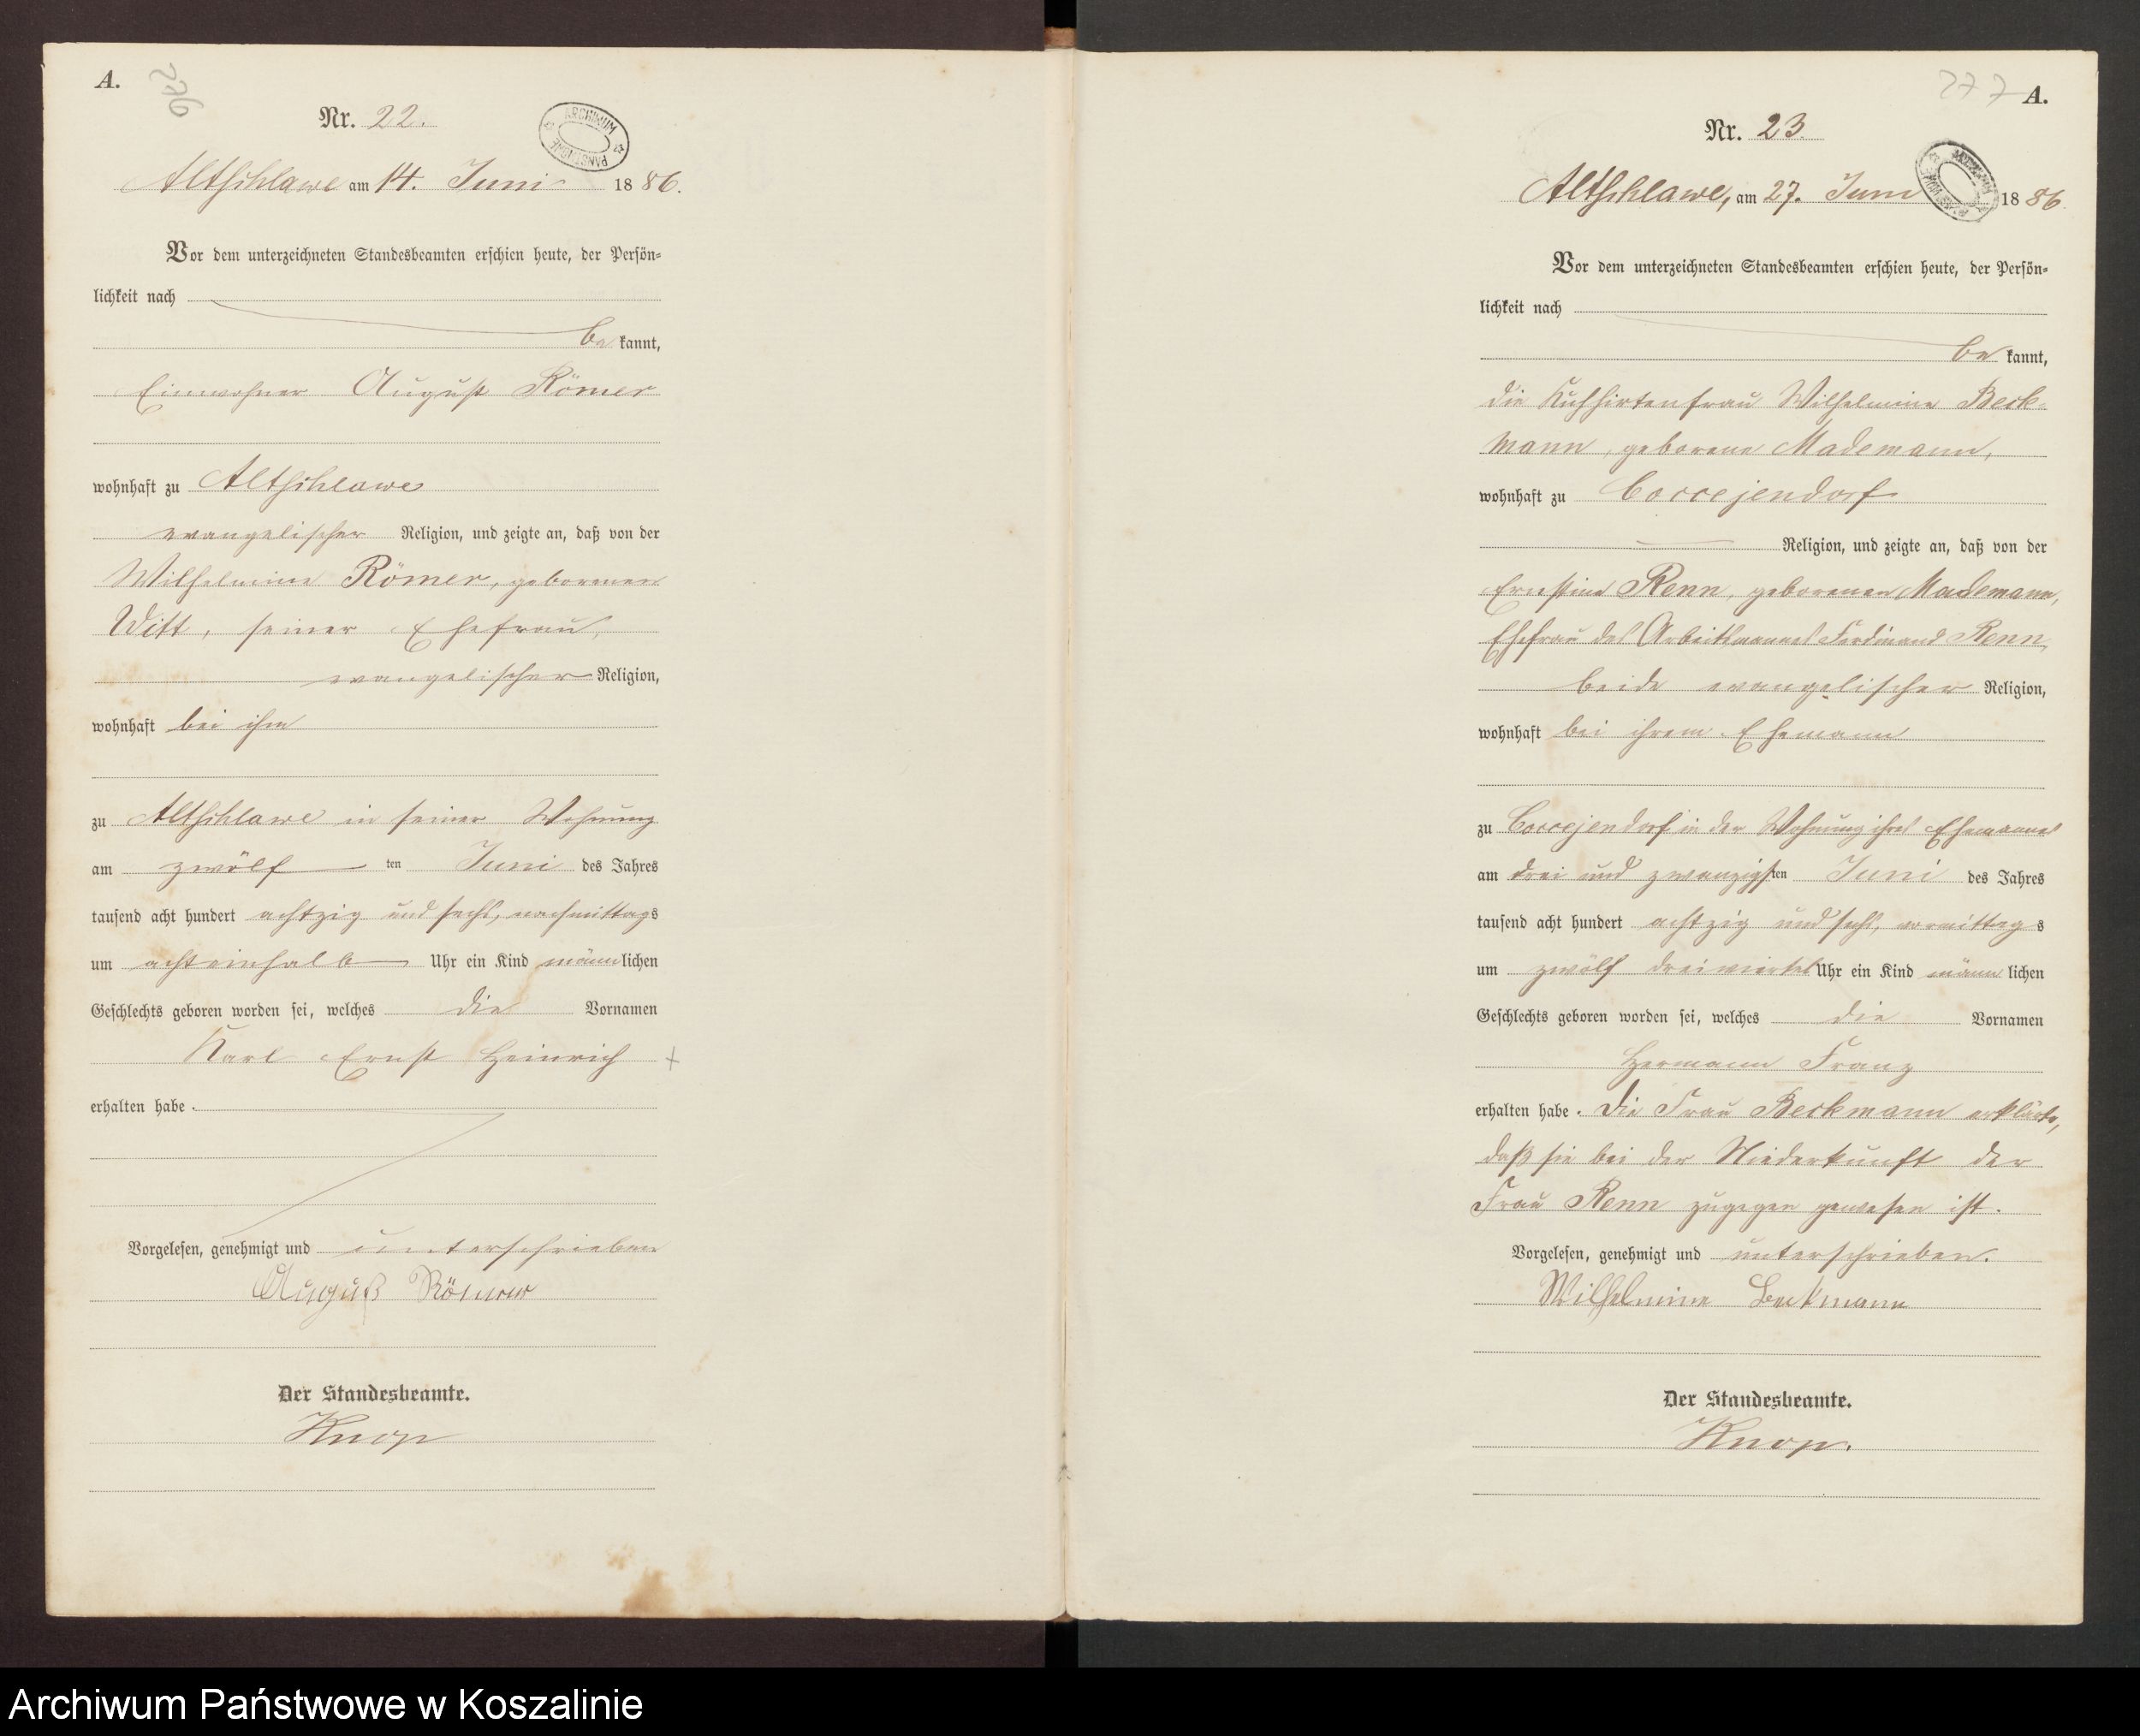 A.
276
Nr. 22.
ARCHIWUM PAŃSTWOWE
Altschlawe am 14. Juni 1886.
Vor dem unterzeichneten Standesbeamten erschien heute, der Persön-
lichkeit nach
be kannt,
Einwohner August Römer
wohnhaft zu Altschlawe
evangelischer Religion, und zeigte an, daß von der
Wilhelmine Römer, geborenen
Witt, seiner Ehefrau,
evangelischer Religion,
wohnhaft bei ihm
zu Altschlawe in seiner Wohnung
am zwölf ten Juni des Jahres
tausend acht hundert achtzig und sechs, nachmittags
um achteinhalb Uhr ein Kind männlichen
Geschlechts geboren worden sei, welches die Vornamen
Karl Ernst Heinrich +
erhalten habe.
Vorgelesen, genehmigt und unterschrieben
August Römer
Der Standesbeamte.
Knop
277 A.
Nr. 23.
Altschlawe, am 27. Juni 1886
Vor dem unterzeichneten Standesbeamten erschien heute, der Persön-
lichkeit nach
be kannt,
die Kuhhirtenfrau Wilhelmine Beck-
mann, geborene Mademann,
wohnhaft zu Coccejendorf
Religion, und zeigte an, daß von der
Ernstine Renn, geborenen Mademann,
Ehefrau des Arbeitsmannes Ferdinand Renn,
beide evangelischer Religion,
wohnhaft bei ihrem Ehemann
zu Coccejendorf in der Wohnung ihres Ehemannes
am drei und zwanzigsten Juni des Jahres
tausend acht hundert achtzig und sechs, vormittags
um zwölf dreiviertel Uhr ein Kind männlichen
Geschlechts geboren worden sei, welches die Vornamen
Hermann Franz
erhalten habe. Die Frau Beckmann erklärte,
daß sie bei der Niederkunft der
Frau Renn zugegen gewesen ist.
Vorgelesen, genehmigt und unterschrieben.
Wilhelmine Beckmann
Der Standesbeamte.
Knop.
Archiwum Państwowe w Koszalinie